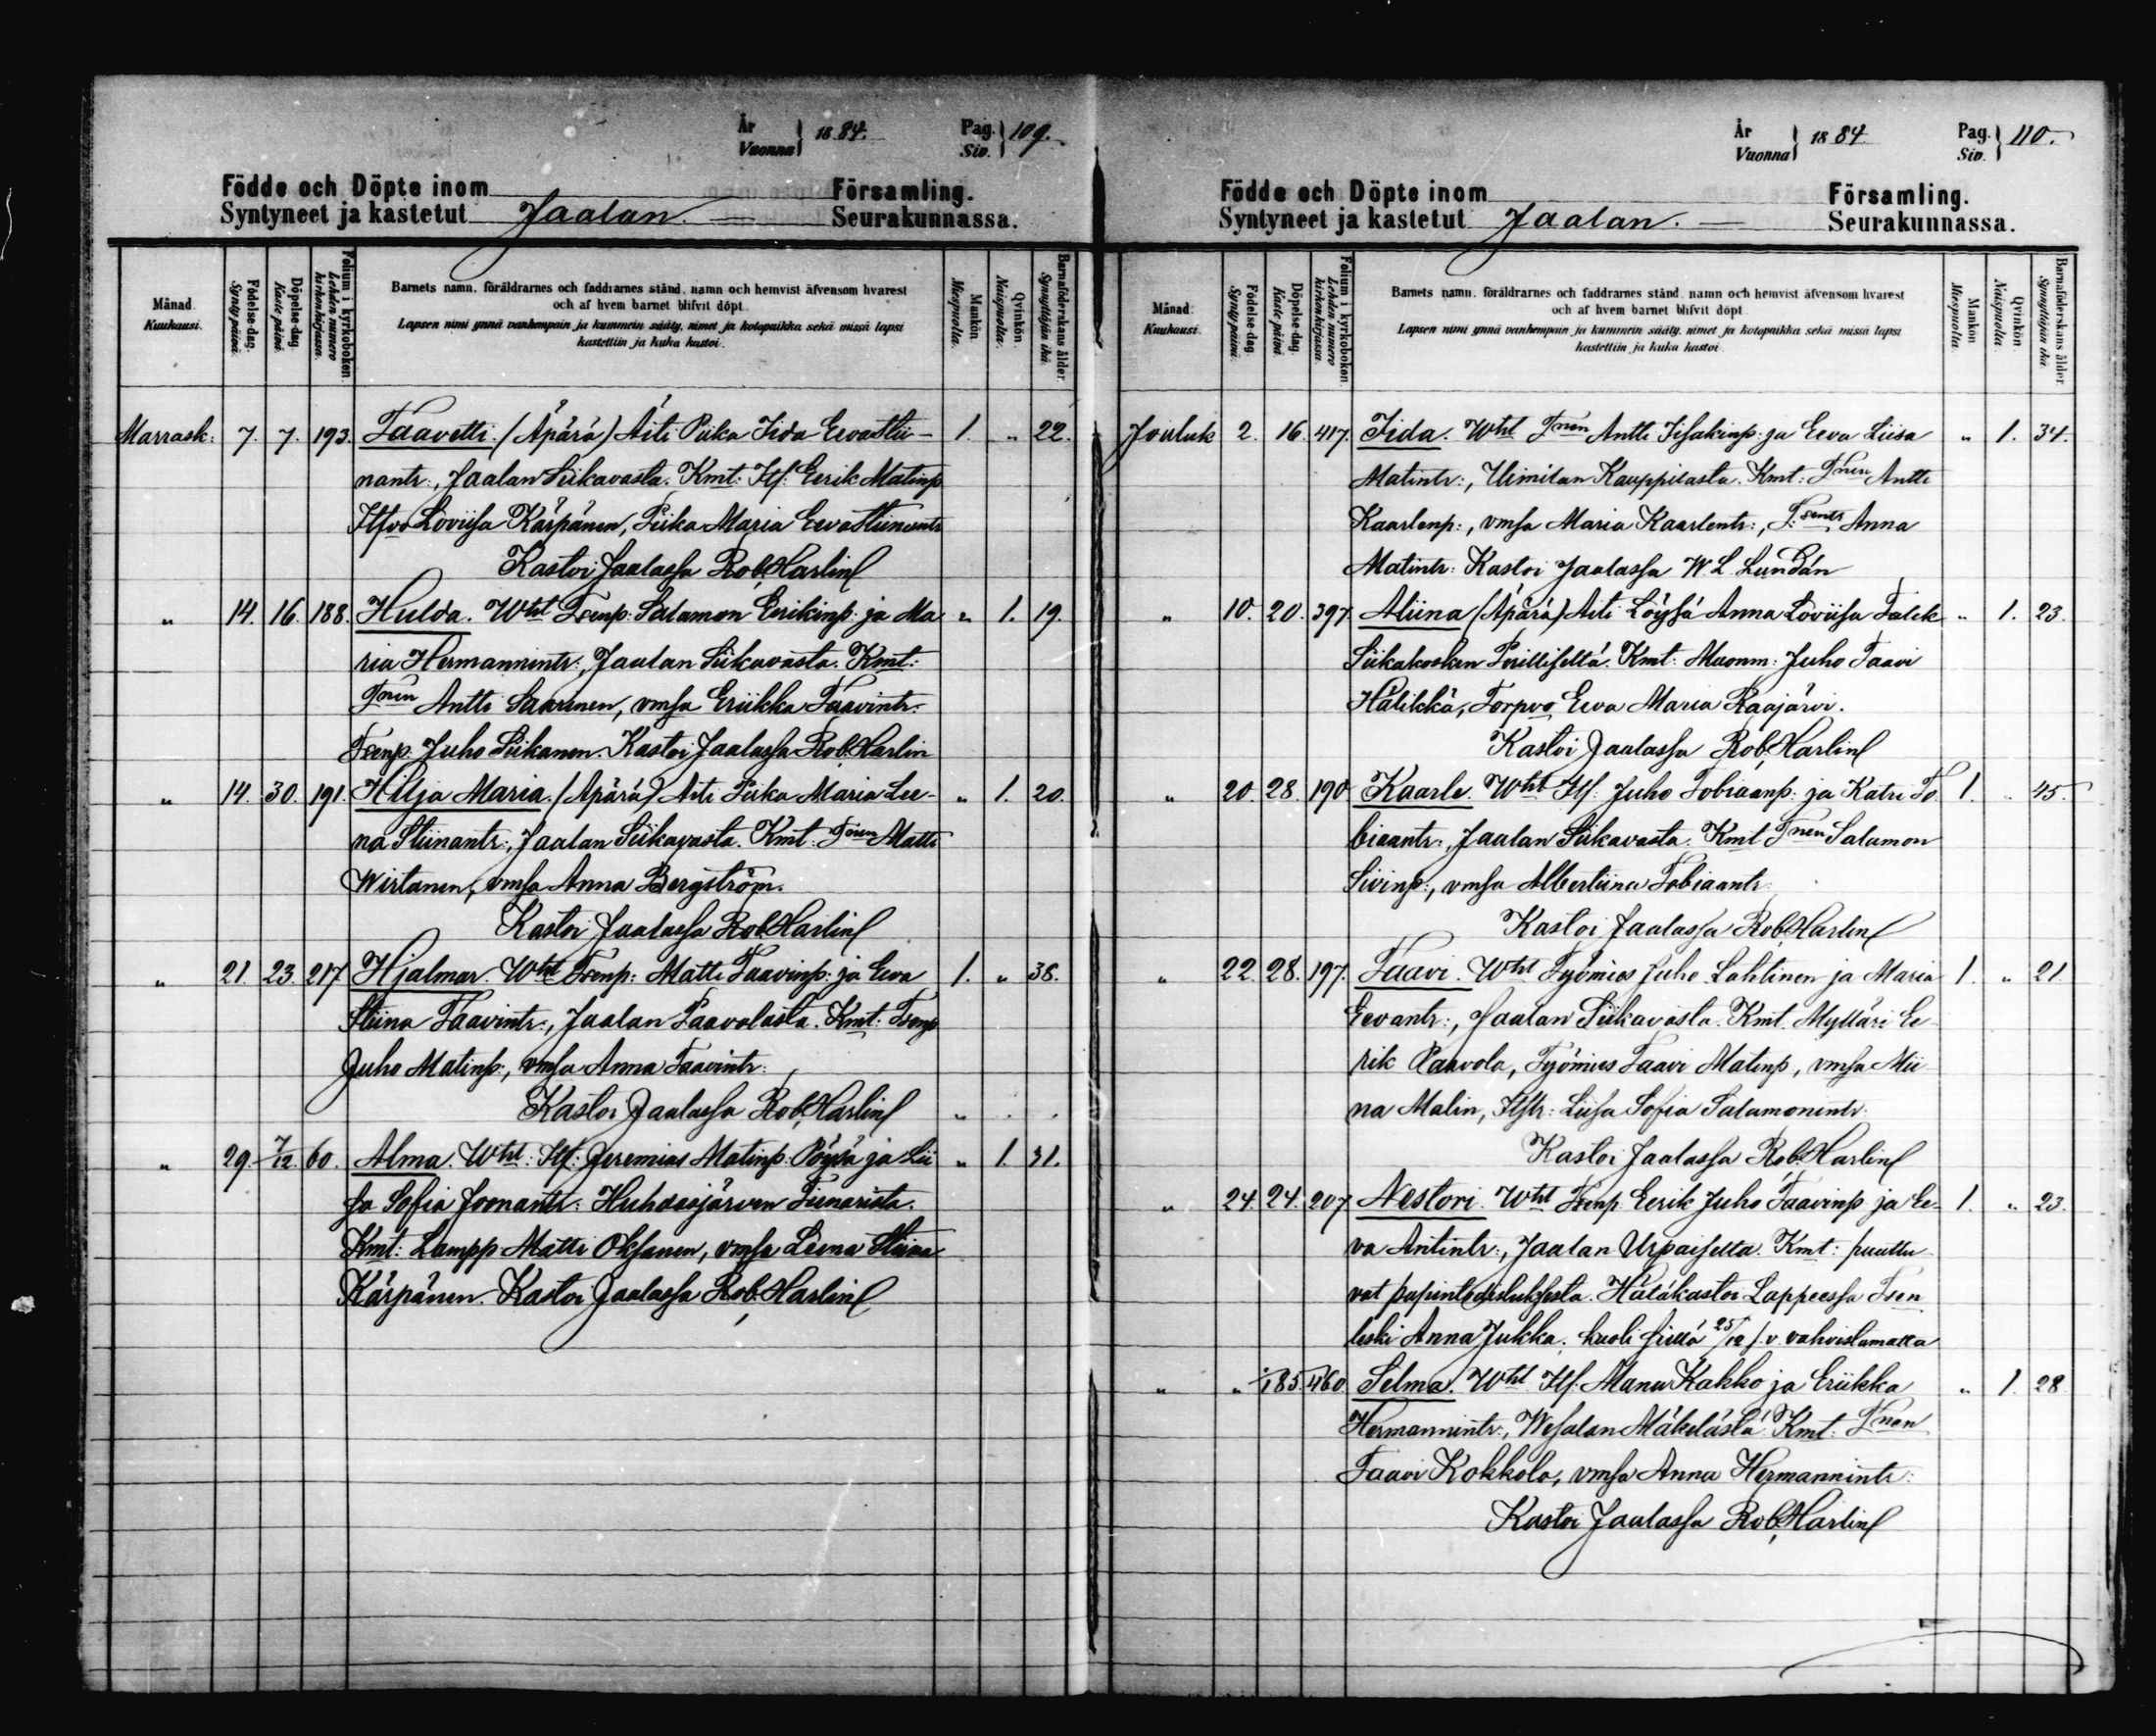 År
Vuonna } 1884.
Pag.
Siv. } 109.
Födde och Döpte inom Församling.
Syntyneet ja kastetut Jaalan. — Seurakunnassa.
Månad.
Kuukausi.
Födelse-dag.
Synty päivä.
Döpelse-dag.
Kaste päivä.
Folium i kyrkoboken.
Lehden numero kirkonkirjassa.
Barnets namn, föräldrarnes och faddrarnes stånd, namn och hemvist äfvensom hvarest
och af hvem barnet blifvit döpt.
Lapsen nimi ynnä vanhempain ja kummein sääty, nimet ja kotopaikka sekä missä lapsi
kastettiin ja kuka kastoi.
Mankön.
Miespuolta.
Qvinkön.
Naispuolta.
Barnaföderskans ålder.
Synnyttäjän ikä.
Marrask: 7. 7. 193. Taavetti. (Äpärä) Äiti Piika Iida Eevastii- 1. „ 22.
nantr:, Jaalan Siikavasta. Kmt: Itf: Eerik Matinp
Itfvo Loviisa Kärpänen, Piika Maria Eeva Stiinantr
Kastoi Jaalassa Rob. Harlin
„ 14. 16. 188. Hulda. Wht Tsenp: Salamon Eerikinp: ja Ma „ 1. 19.
ria Hermannintr:, Jaalan Siikavasta. Kmt:
Tnen Antti Saarinen, vmsa Eriikka Taavintr.
Tsenp. Juho Siikanen. Kastoi Jaalassa Rob. Harlin
„ 14. 30. 191. Hilja Maria. (Äpärä) Äiti Piika Maria Lee- „ 1. 20.
na Stiinantr:, Jaalan Siikavasta. Kmt: Tnen Matti
Wirtanen, vmsa Anna Bergström.
Kastoi Jaalassa Rob. Harlin
„ 21. 23. 217 Hjalmar. Wht Tsenp: Matti Taavinp: ja Eeva 1. „ 38.
Stiina Taavintr:, Jaalan Paavolasta. Kmt: Tsenp
Juho Matinp:, vmsa Anna Taavintr:
Kastoi Jaalassa Rob. Harlin
„ 29. 7/12. 60. Alma. Wht: Itf: Jeremias Matinp: Pöyvä ja Lii „ 1. 31.
sa Sofia Joonantr: Huhdasjärven
Kmt: Lampp Matti Oksanen, vmsa Leena Stiina
Kärpänen. Kastoi Jaalassa Rob. Harlin
År
Vuonna } 1884
Pag.
Siv. } 110.
Födde och Döpte inom Församling.
Syntyneet ja kastetut Jaalan. — Seurakunnassa.
Månad.
Kuukausi.
Födelse-dag.
Synty päivä.
Döpelse-dag.
Kaste päivä.
Folium i kyrkoboken.
Lehden numero kirkonkirjassa.
Barnets namn, föräldrarnes och faddrarnes stånd, namn och hemvist äfvensom hvarest
och af hvem barnet blifvit döpt.
Lapsen nimi ynnä vanhempain ja kummein sääty, nimet ja kotopaikka sekä missä lapsi
kastettiin ja kuka kastoi.
Mankön
Miespuolta.
Qvinkön.
Naispuolta.
Barnaföderskans ålder.
Synnyttäjän ikä
Jouluk 2. 16. 417. Iida. Wht Tnen Antti Iisakinp: ja Eeva Liisa „ 1. 34.
Matintr:, Uimilan Kauppilasta. Kmt: Tnen Antti
Kaarlenp:, vmsa Maria Kaarlentr:, Anna
Matintr: Kastoi Jaalassa W. L. Lundán
„ 10. 20. 397. Aliina (Äpärä) Äiti Löysä Anna Loviisa Falck „ 1. 23.
Siikakosken Kmt: Muonm: Juho Taavi
Hälikkä, Torpvo Eeva Maria Raajärvi.
Kastoi Jaalassa Rob. Harlin
„ 20. 28. 190. Kaarle. Wht Itf: Juho Tobiaanp: ja Katri To 1. „ 45.
biaantr:, Jaalan Siikavasta. Kmt Tnen Salamon
Sivinp:, vmsa Albertiina Tobiaantr:
Kastoi Jaalassa Rob. Harlin
„ 22. 28. 197. Taavi. Wht Työmies Juho Lahtinen ja Maria 1. „ 21.
Eevantr:, Jaalan Siikavasta. Kmt. Mylläri Ee
rik Paavola, Työmies Taavi Matinp, vmsa Mii
na Malin, Itftr: Liisa Sofia Salamonintr.
Kastoi Jaalassa Rob. Harlin
„ 24. 24. 207 Nestori. Wht Tsenp. Eerik Juho Taavinp ja Ee- 1. „ 23.
va Antintr:, Jaalan Urpaiselta. Kmt: puuttu
vat papintodistuksesta. Hätäkastoi Lappeessa Tsen
leski Anna Jukka. kuoli siellä 25/12 s.v. vahvistamatta
„ „ 1/185. 460. Selma. Wht Itf: Manu Kakko ja Eriikka „ 1. 28
Hermannintr:, Wesalan Mäkelästä. Kmt: Tnen
Taavi Kokkola, vmsa Anna Hermannintr:
Kastoi Jaalassa Rob. Harlin